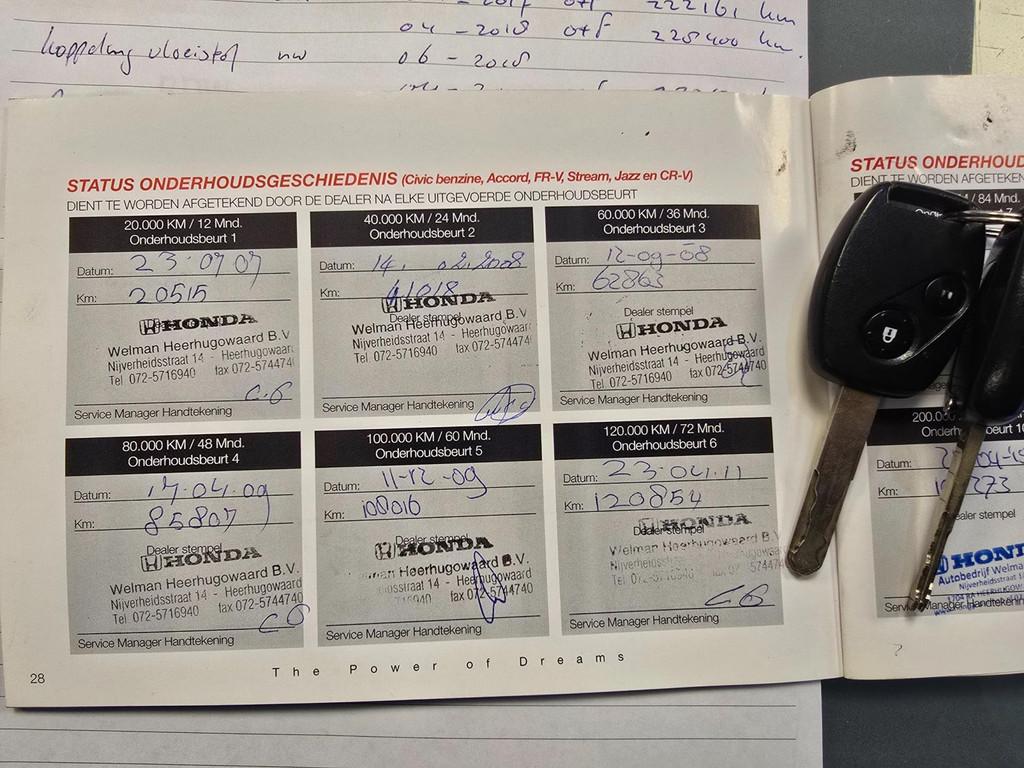 222161 km
04-2018 off 228400 km.
koppeling vloeistof nw 06-2018
STATUS ONDERHOUDSGESCHIEDENIS (Civic benzine, Accord, FR-V, Stream, Jazz en CR-V)
DIENT TE WORDEN AFGETEKEND DOOR DE DEALER NA ELKE UITGEVOERDE ONDERHOUDSBEURT
20.000 KM / 12 Mnd.
Onderhoudsbeurt 1
Datum: 23 07 07
Km: 20515
HONDA
Welman Heerhugowaard B.V.
Nijverheidsstraat 14 - Heerhugowaard
Tel. 072-5716940 fax 072-5744740
C.6
Service Manager Handtekening
40.000 KM / 24 Mnd.
Onderhoudsbeurt 2
Datum: 14. 02.2008
Km: 41018
HONDA
Dealer stempel
Welman Heerhugowaard
Nijverheidsstraat 14 - Heerhugowaard
Tel. 072-5716940 fax 072-5744740
Service Manager Handtekening
60.000 KM / 36 Mnd.
Onderhoudsbeurt 3
Datum: 12-09-08
Km: 62863
Dealer stempel
HONDA
Welman Heerhugowaard B.V.
Nijverheidsstraat 14 - Heerhugowaard
Tel. 072-5716940 fax 072-5744740
Service Manager Handtekening
80.000 KM / 48 Mnd.
Onderhoudsbeurt 4
Datum: 17.04.09
Km: 85807
Dealer stempel
HONDA
Welman Heerhugowaard B.V.
Nijverheidsstraat 14 - Heerhugowaard
Tel. 072-5716940 fax 072-5744740
C6
Service Manager Handtekening
100.000 KM / 60 Mnd.
Onderhoudsbeurt 5
Datum: 11-12-09
Km: 100016
Dealer stempel
HONDA
Heerhugowaard B.V.
14 - Heerhugowaard
fax 072-5744740
Service Manager Handtekening
120.000 KM / 72 Mnd.
Onderhoudsbeurt 6
Datum: 23.04.11
Km: 120854
HONDA
Dealer stempel
Welman Heerhugowaard B.V.
C6
Service Manager Handtekening
The Power of Dreams
28
STATUS ONDERHOUD
DIENT TE WORDEN AFGETEKEN
/ 84 Mnd.
200.0
Datum:
Km:
273
HOND
Autobedrijf Welma
Nijverheidsstraat 1
Manager Handteken